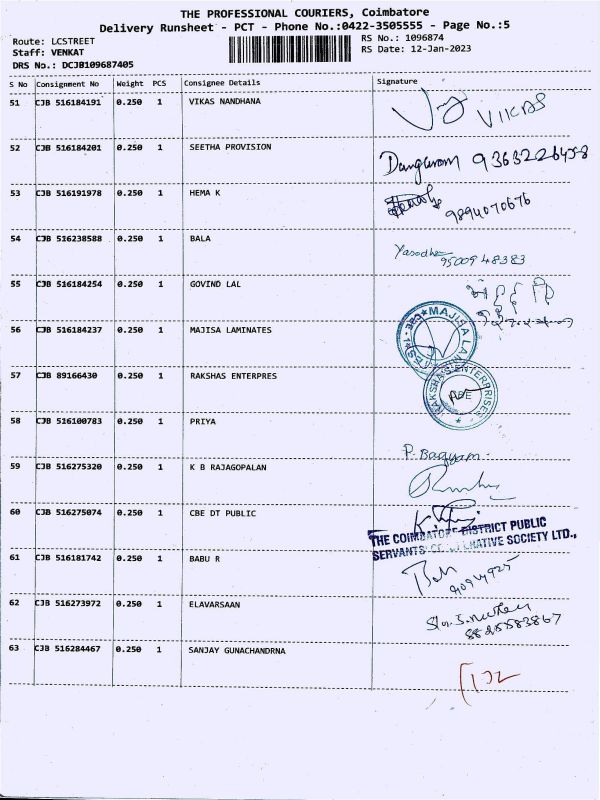 THE PROFESSIONAL COURIERS, Coimbatore
Delivery Runsheet - PCT - Phone No.:0422-3505555 - Page No.:5
Route: LCSTREET
RS No.: 1096874
Staff: VENKAT
RS Date: 12-Jan-2023
DRS No.: DCJB109687405
S No Consignment No Weight PCS Consignee Details Signature
51 CJB 516184191 0.250 1 VIKAS NANDHANA
VIKAS
52 CJB 516184201 0.250 1 SEETHA PROVISION
9363226458
53 CJB 516191978 0.250 1 HEMA K
9894070676
54 CJB 516238588 0.250 1 BALA
Yasodha
9500948383
55 CJB 516184254 0.250 1 GOVIND LAL
56 CJB 516184237 0.250 1 MAJISA LAMINATES
MAJISA LAM
CBE-1
57 CJB 89166430 0.250 1 RAKSHAS ENTERPRES
RAKSHA'S ENTERPRISES
CBE
58 CJB 516100783 0.250 1 PRIYA
P. Bagyam
59 CJB 516275320 0.250 1 K B RAJAGOPALAN
60 CJB 516275074 0.250 1 CBE DT PUBLIC
THE COIMBATORE DISTRICT PUBLIC
SERVANTS CO OPERATIVE SOCIETY LTD.,
61 CJB 516181742 0.250 1 BABU R
62 CJB 516273972 0.250 1 ELAVARSAAN
8825583867
63 CJB 516284467 0.250 1 SANJAY GUNACHANDRNA